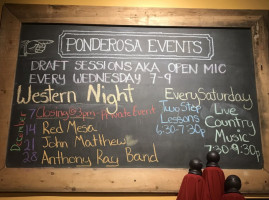 PONDEROSA EVENTS
DRAFT SESSIONS AKA OPEN MIC
EVERY WEDNESDAY 7-9
Western Night
Every Saturday
December
7 Closing @ 3pm Private Event
14 Red Mesa
21 John Matthew
28 Anthony Ray Band
Two Step
Lessons
6:30-7:30p
Live
Country
Music
7:30-9:30p